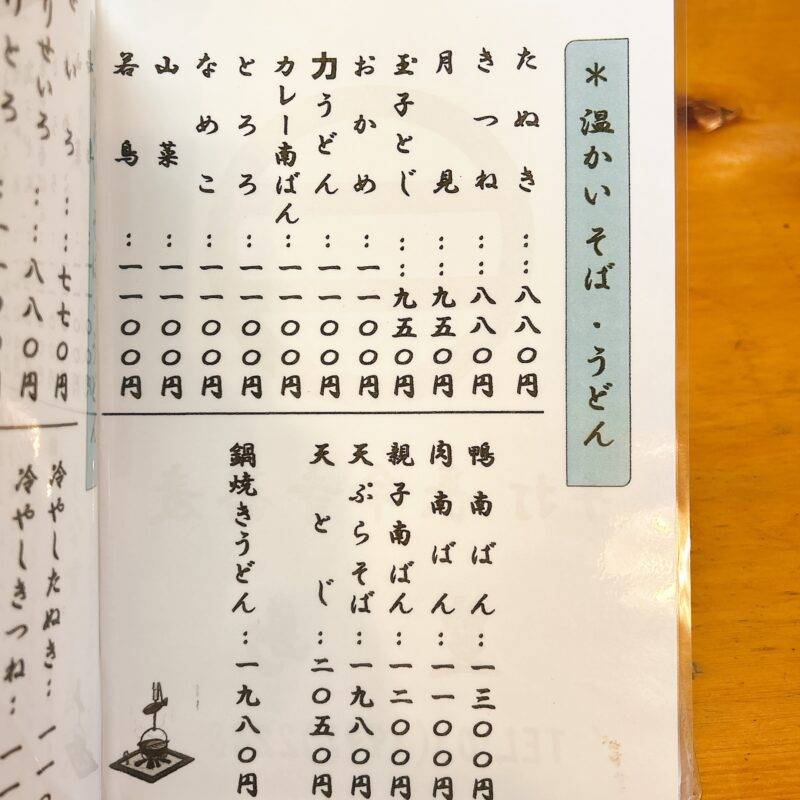 ＊温かいそば・うどん
たぬき：：八八〇円
きつね：：八八〇円
月見：：九五〇円
玉子とじ：：九五〇円
おかめ：一一〇〇円
力うどん：一一〇〇円
カレー南ばん：一一〇〇円
とろろ：一一〇〇円
なめこ：一一〇〇円
山菜：一一〇〇円
若鳥：一一〇〇円
鴨南ばん：一三〇〇円
肉南ばん：一一〇〇円
親子南ばん：一二〇〇円
天ぷらそば：一九八〇円
天とじ：二〇五〇円
鍋焼きうどん：一九八〇円
ろ：：七七〇円
りせいろ：：八八〇円
りとろ
冷やしたぬき：一一
冷やしきつね：一一